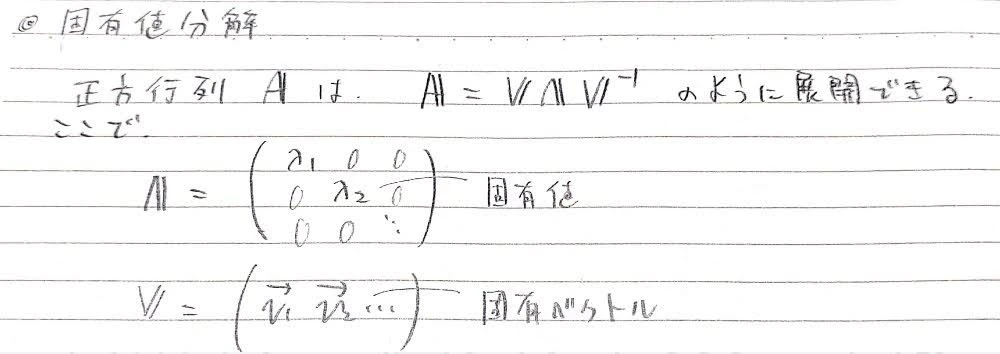 ◎ 固有値分解
正方行列 A は. A = V Λ V⁻¹ のように展開できる.
ここで.
Λ = ( λ₁ 0 0
0 λ₂ 0 固有値
0 0 ⋱ )
V = ( v₁ v₂ … ) 固有ベクトル